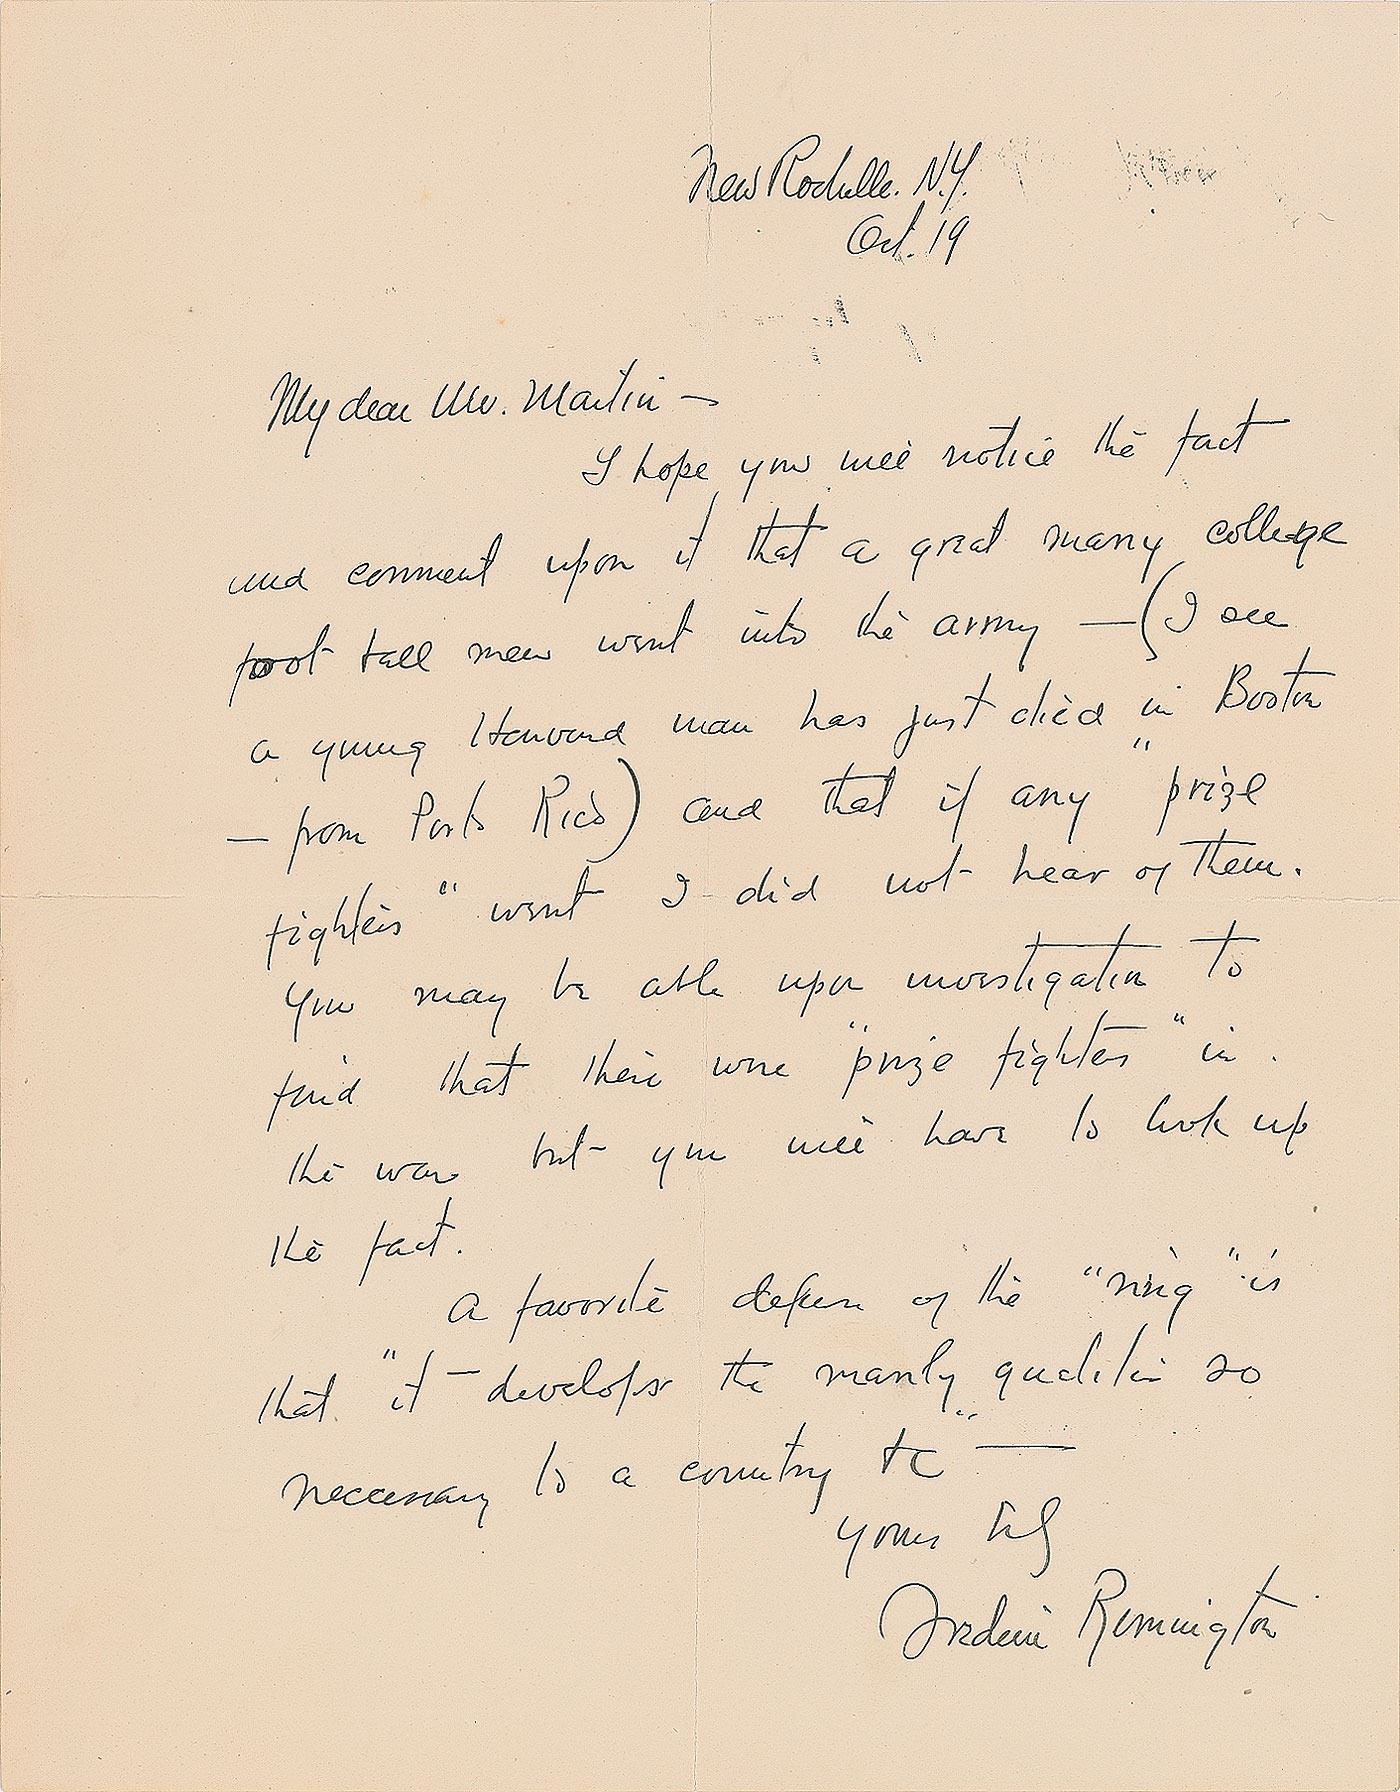 New Rochelle. N.Y.
Oct. 19
My dear Mr. Martin —
I hope you will notice the fact
and comment upon it that a great many college
foot ball men went into the army — (I see
a young Harvard man has just died in Boston
— from Porto Rico) and that if any "prize
fighters" went I did not hear of them.
You may be able upon investigation to
find that there were "prize fighters" in
the war but you will have to look up
the fact.
A favorite defense of the "ring" is
that "it — develops the manly qualities so
neccessary to a country tc" —
Yours
Frederic Remington